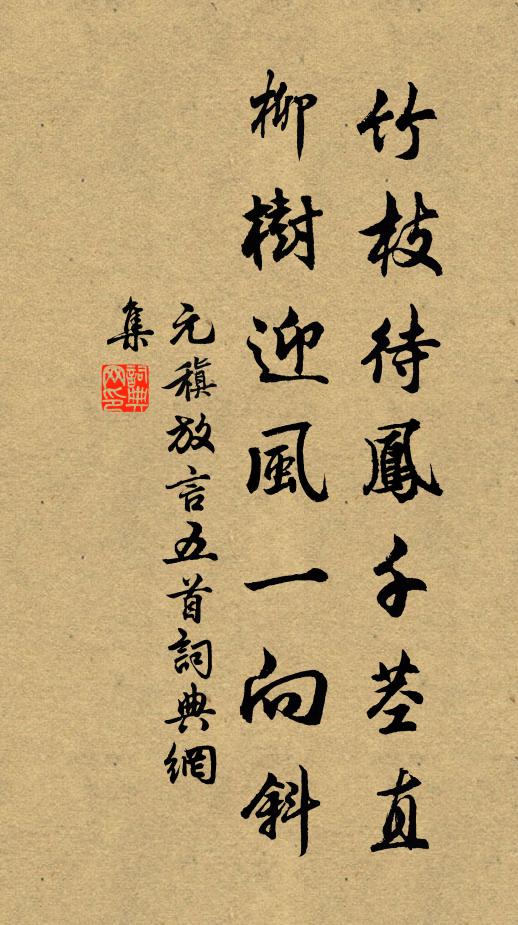 竹枝待鳳千茎直
柳樹迎風一向斜
元稹放言五首詞典網
集
詞典網印